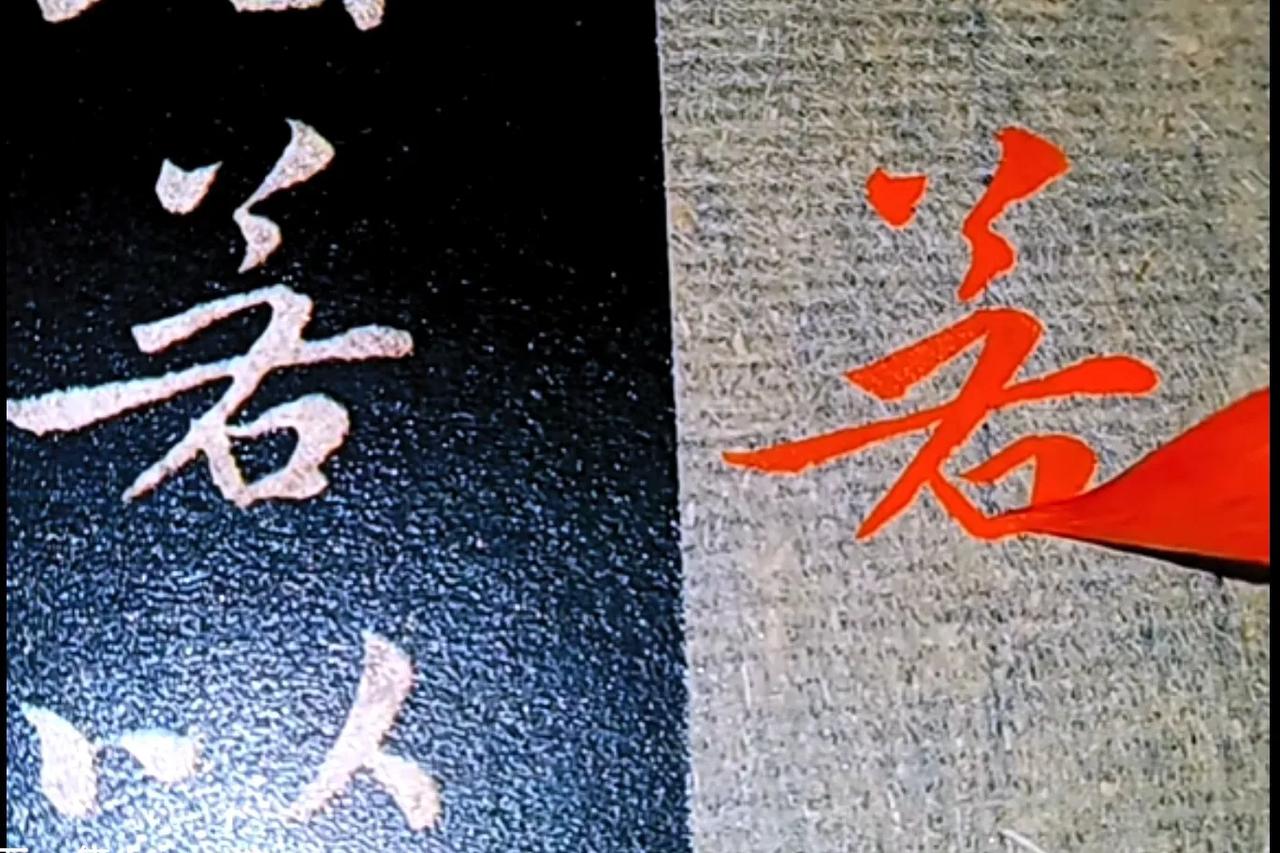 若
以
若